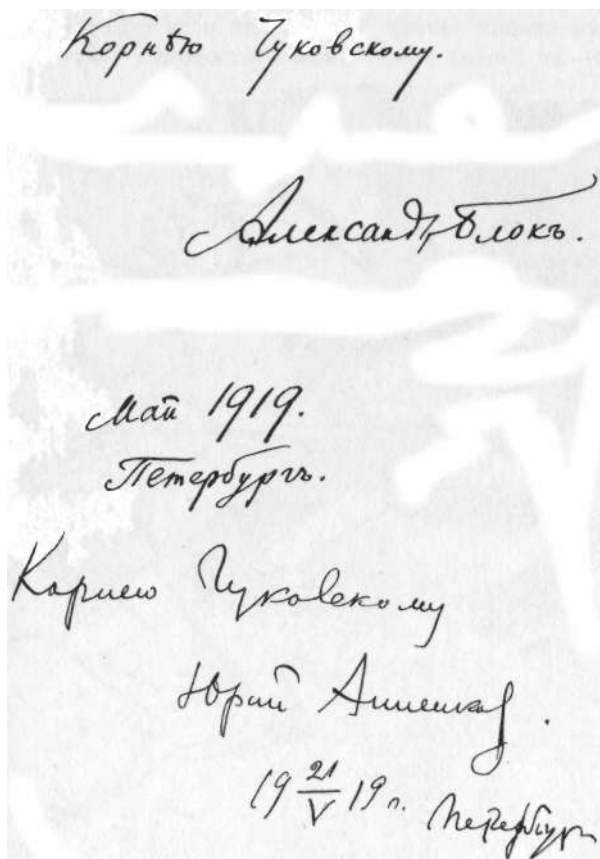 Корнѣю Чуковскому.
Александръ Блокъ.
Май 1919.
Петербургъ.
Корнею Чуковскому
Юрий Анненков.
19 21/V 19 г. Петербург